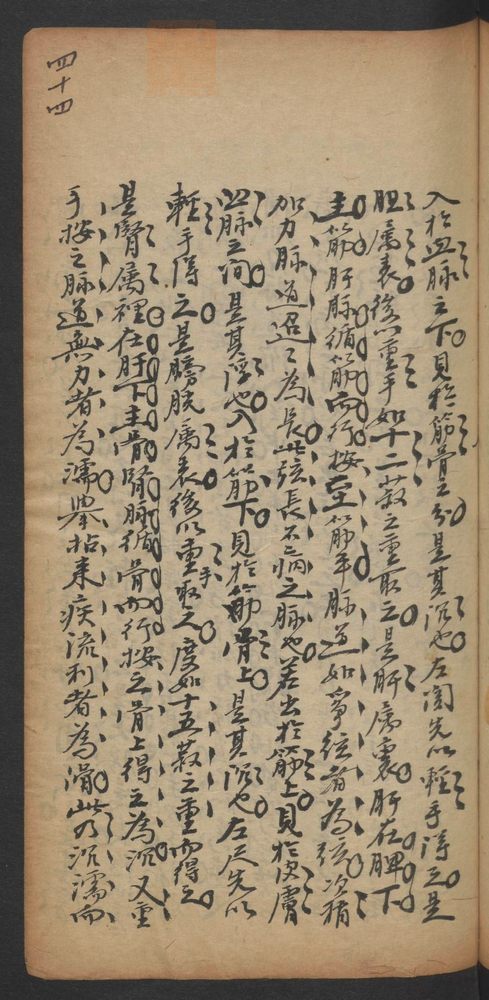 四十四
入於血脉之下見於筋骨之分是其沉也左関先以輕手得之是
胆属表後以重手如十二菽之重取之是肝属裏肝在脾下
主筋肝脉循筋而行按至筋平脉道如箏絃者為弦次稍
加力脉道迢迢為長此弦長不病之脉也若出於筋上見於皮膚
血脉之间是其浮也入於筋下見於筋骨上是其沉也左尺先以
輕手得之是膀胱属表後以重手取之度如十五菽之重而得之
是腎属裡在肝下主骨腎脉循骨而行按之骨上得之為沉又重
手按之脉道無力者為濡舉指来疾流利者為滑此乃沉濡而